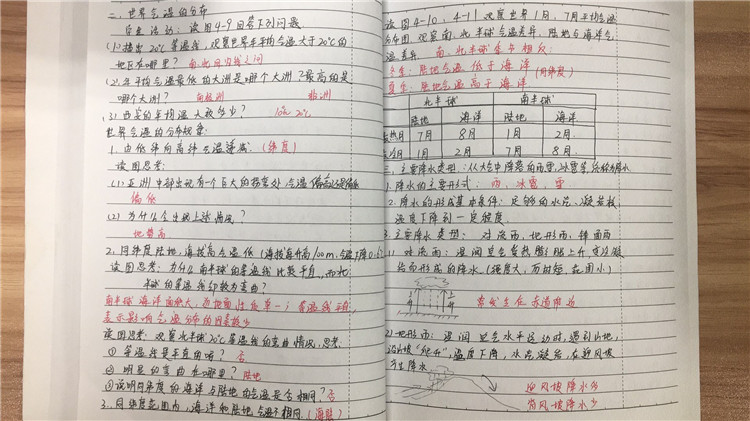 二、世界气温的分布
学生活动：读图4-9回答下列问题
(1)找出20℃等温线，观察世界年平均气温大于20℃的
地区在哪里？南北回归线之间
(2)年平均气温最低的大洲是哪个大洲？最高的是
哪个大洲？南极洲 非洲
(3)西安的年平均温大致多少？10℃~20℃
世界气温的分布规律：
1. 由低纬向高纬气温递减（纬度）
读图思考：
(1)亚洲中部出现有一个巨大的提案处气温偏高还是偏低
偏低
(2)为什么会出现上述情况？
地势高
2. 同纬度陆地，海拔高气温低（海拔每升高100m，气温下降0.6℃
读图思考：为什么南半球的等温线比较平直，而北
半球的等温线却较为弯曲？
南半球海洋面积大，而地面性质单一；等温线平直，
表示影响气温分布的因素较少
读图思考：观察北半球20℃等温线的弯曲情况，思考：
①等温线是平直的吗？否
②明显的弯曲在哪里？陆地
③说明同纬度的海洋与陆地的气温是否相同？否
3. 同纬度范围内，海洋和陆地气温不相同（海陆）
读图4-10、4-11观察世界1月、7月平均气温
分布图，观察南、北半球气温差异，陆地与海洋气
温差异 南、北半球季节相反
冬季：陆地气温低于海洋
夏季：陆地气温高于海洋（同纬度）
北半球 南半球
陆地 海洋 陆地 海洋
最热月 7月 8月 1月 2月
最冷月 1月 2月 7月 8月
三、主要降水类型：从大气中降落的雨雪，冰雹等，统称为降水
1. 降水的主要形式：雨、冰雹、雪
2. 降水的形成基本条件：足够的水汽、凝结核，
温度下降到一定程度
3. 主要降水类型：对流雨、地形雨、锋面雨
1) 对流雨：湿润空气受热膨胀上升，变冷凝
结而形成的降水（强度大，历时短，范围小）
常发生在赤道附近
2)地形雨：湿润空气水平运动时，遇到山地，
沿山坡“爬升”，温度下降，水汽凝结，在迎风坡
产生降水
迎风坡降水多
背风坡降水少